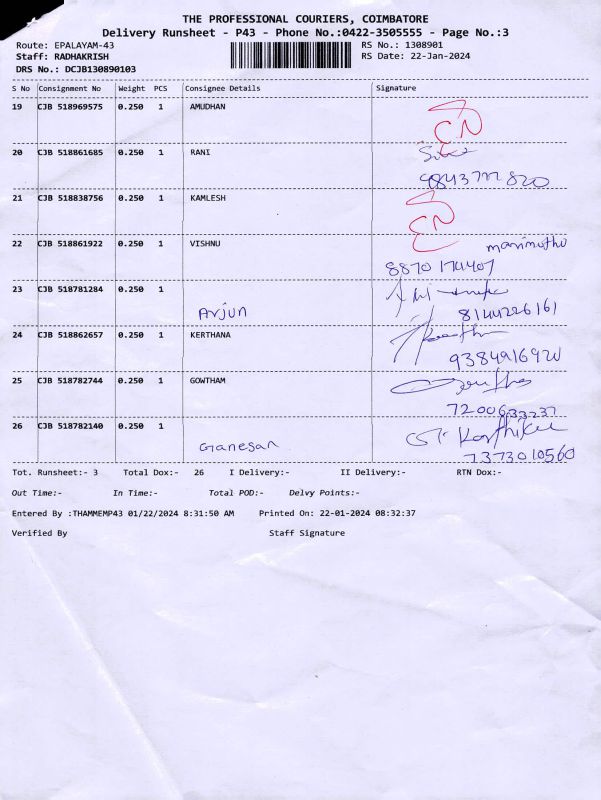 THE PROFESSIONAL COURIERS, COIMBATORE
Delivery Runsheet - P43 - Phone No.:0422-3505555 - Page No.:3
Route: EPALAYAM-43 RS No.: 1308901
Staff: RADHAKRISH RS Date: 22-Jan-2024
DRS No.: DCJB130890103
S No Consignment No Weight PCS Consignee Details Signature
19 CJB 518969575 0.250 1 AMUDHAN
CN
20 CJB 518861685 0.250 1 RANI
21 CJB 518838756 0.250 1 KAMLESH
CN
22 CJB 518861922 0.250 1 VISHNU
marimuthu
23 CJB 518781284 0.250 1
Arjun 8144226161
24 CJB 518862657 0.250 1 KERTHANA
25 CJB 518782744 0.250 1 GOWTHAM
7200633237
26 CJB 518782140 0.250 1
Ganesan
7373010560
Tot. Runsheet:- 3 Total Dox:- 26 I Delivery:- II Delivery:- RTN Dox:-
Out Time:- In Time:- Total POD:- Delvy Points:-
Entered By :THAMMEMP43 01/22/2024 8:31:50 AM Printed On: 22-01-2024 08:32:37
Verified By Staff Signature